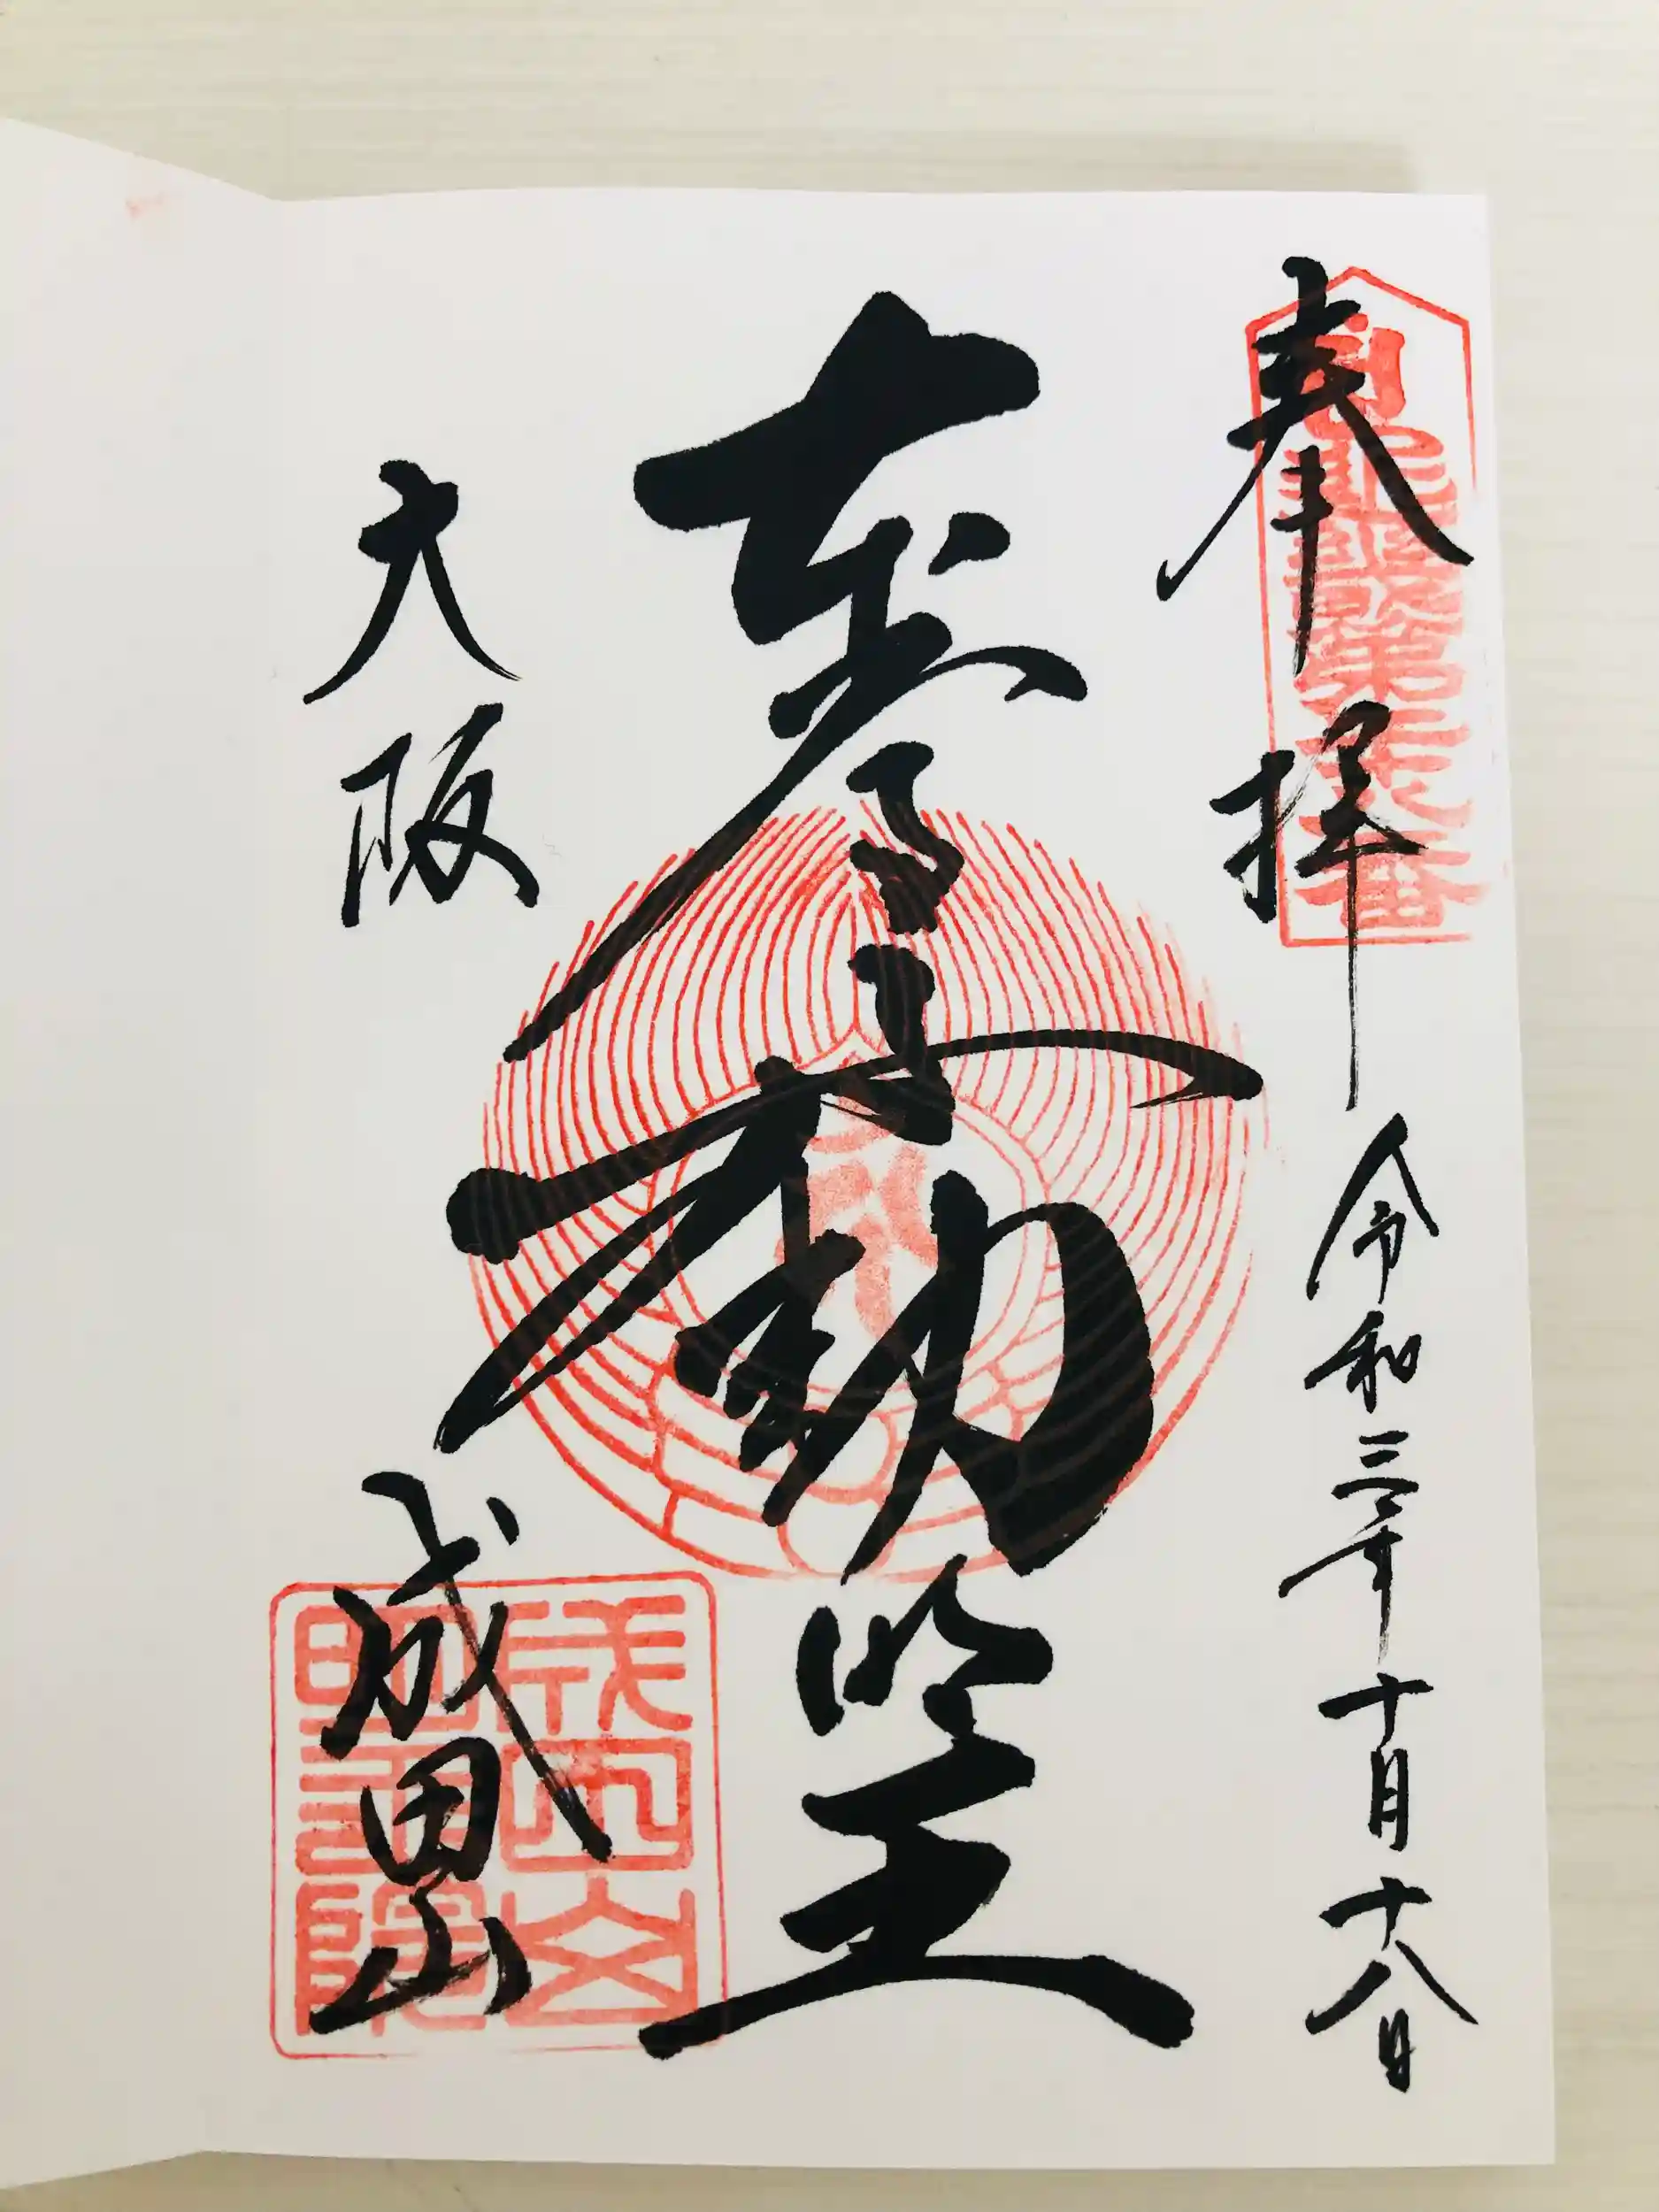 奉拝
令和三年十月十八日
不動明王
大阪
成田山
成田山
明王院